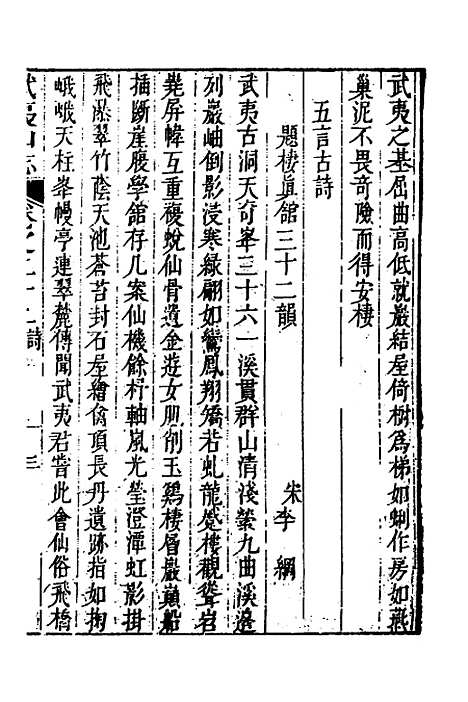 武夷之基屈曲高低就巖結屋倚樹爲梯如蜩作房如燕
巢泥不畏奇險而得安棲
五言古詩
題棲眞館三十二韻
宋李綱
武夷古洞天奇峯三十六一溪貫群山清淺縈九曲溪邊
列巖岫倒影浸寒綠翩如鸞鳳翔矯若虬龍蹙樓觀聳岩
堯屏幃互重複蛻仙骨遺金遊女肌削玉鷄棲層巖巔船
插斷崖腹學舘存几案仙機餘杼軸嵐光瑩澄潭虹影掛
飛瀑翠竹蔭天池蒼苔封石屋繪禽項長丹遺跡指如掬
峨峨天柱峯幔亭連翠麓傳聞武夷君嘗此會仙俗飛橋
武夷山志 卷之二十二 詩 一 三